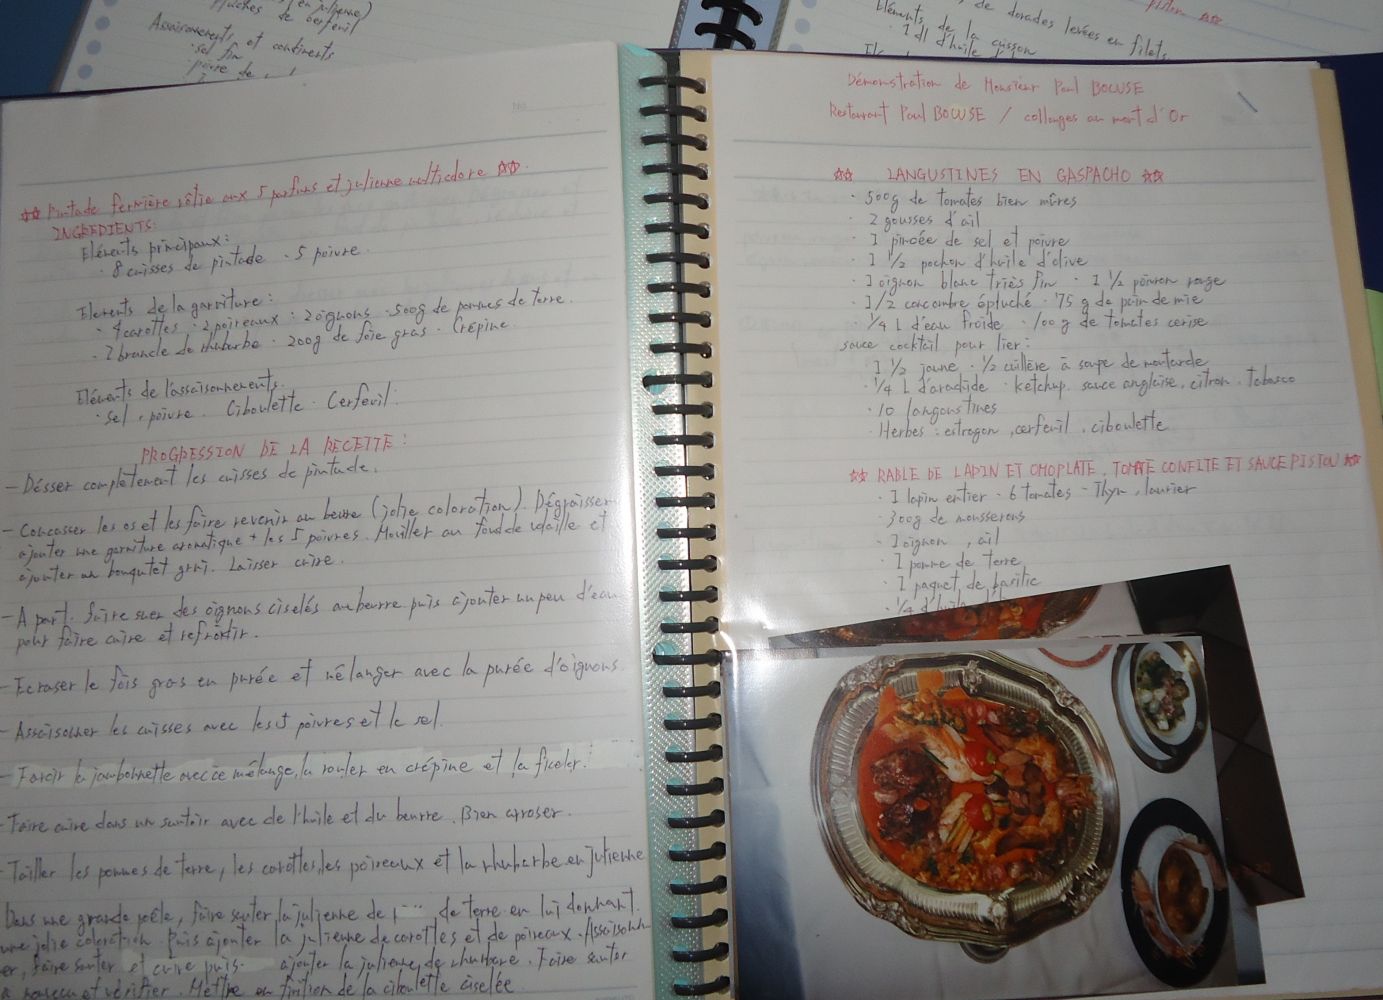 Assaisonnements et condiments
sel fin
de dorades levées en filets
Eléments de la cuisson
1 dl d'huile
☆☆ Pintade fermière rôtie aux 5 parfums et julienne multicolore ☆☆
INGREDIENTS:
Eléments principaux:
· 8 cuisses de pintade · 5 poivre.
Elements de la garniture:
· 4 carottes · 2 poireaux · 2 oignons · 500g de pommes de terre.
· 2 brancle de rhubarbe · 200g de foie gras · Crépine.
Eléments de l'assaisonnements.
· sel, poivre. Ciboulette · Cerfeuil.
PROGRESSION DE LA RECETTE:
- Désser complètement les cuisses de pintade.
- Concasser les os et les faire revenir au beurre (jolie coloration). Dégraisser
ajouter une garniture aromatique + les 5 poivres. Mouiller au fond de volaille et
ajouter un bouqutet grni. Laisser cuire.
- A part. faire suer des oignons ciselés au beurre puis ajouter un peu d'eau
pour faire cuire et refroidir.
- Ecraser le fois gras en purée et mélanger avec la purée d'oignons.
- Assaisonner les cuisses avec les 5 poivres et le sel.
- Farcir la jambonnette avec ce mélange, la rouler en crépine et la ficeler.
- Faire cuire dans un sautoir avec de l'huile et du beurre. Bien arroser.
- Tailler les pommes de terre, les carottes, les poireaux et la rhubarbe en julienne
Dans une grande poêle, faire sauter la julienne de de terre en lui donnant
une jolie coloration. Puis ajouter la julienne de carottes et de poireaux. Assaisonn
er, faire sauter et cuire puis ajouter la julienne de rhubarbe. Faire sauter
et vérifier. Mettre en finition de la ciboulette ciselée.
Démonstration de Monsieur Paul BOCUSE
Restaurant Paul BOCUSE / collonges au mont d'Or
☆☆ LANGUSTINES EN GASPACHO ☆☆
· 500g de tomates bien mûres
· 2 gousses d'ail
· 1 pincée de sel et poivre
· 1 1/2 pochon d'huile d'olive
· 1 oignon blanc triès fin · 1 1/2 poivron rouge
· 1/2 concombre épluché · 75 g de pain de mie
· 1/4 L d'eau froide · 100 g de tomates cerise
sauce cocktail pour lier:
· 1 1/2 jaune · 1/2 cuillère à soupe de moutarde
· 1/4 L d'arachide · ketchup. sauce anglaise, citron. tabasco
· 10 langoustines
· Herbes: estragon, cerfeuil, ciboulette
☆☆ RABLE DE LAPIN ET OMOPLATE, TOMATE CONFITE ET SAUCE PISTOU ☆☆
· 1 lapin entier - 6 tomates - Thym, laurier
· 300g de mousserons
· 1 oignon, ail
· 1 pomme de terre
· 1 paquet de basilic
· 1/4 d'huile